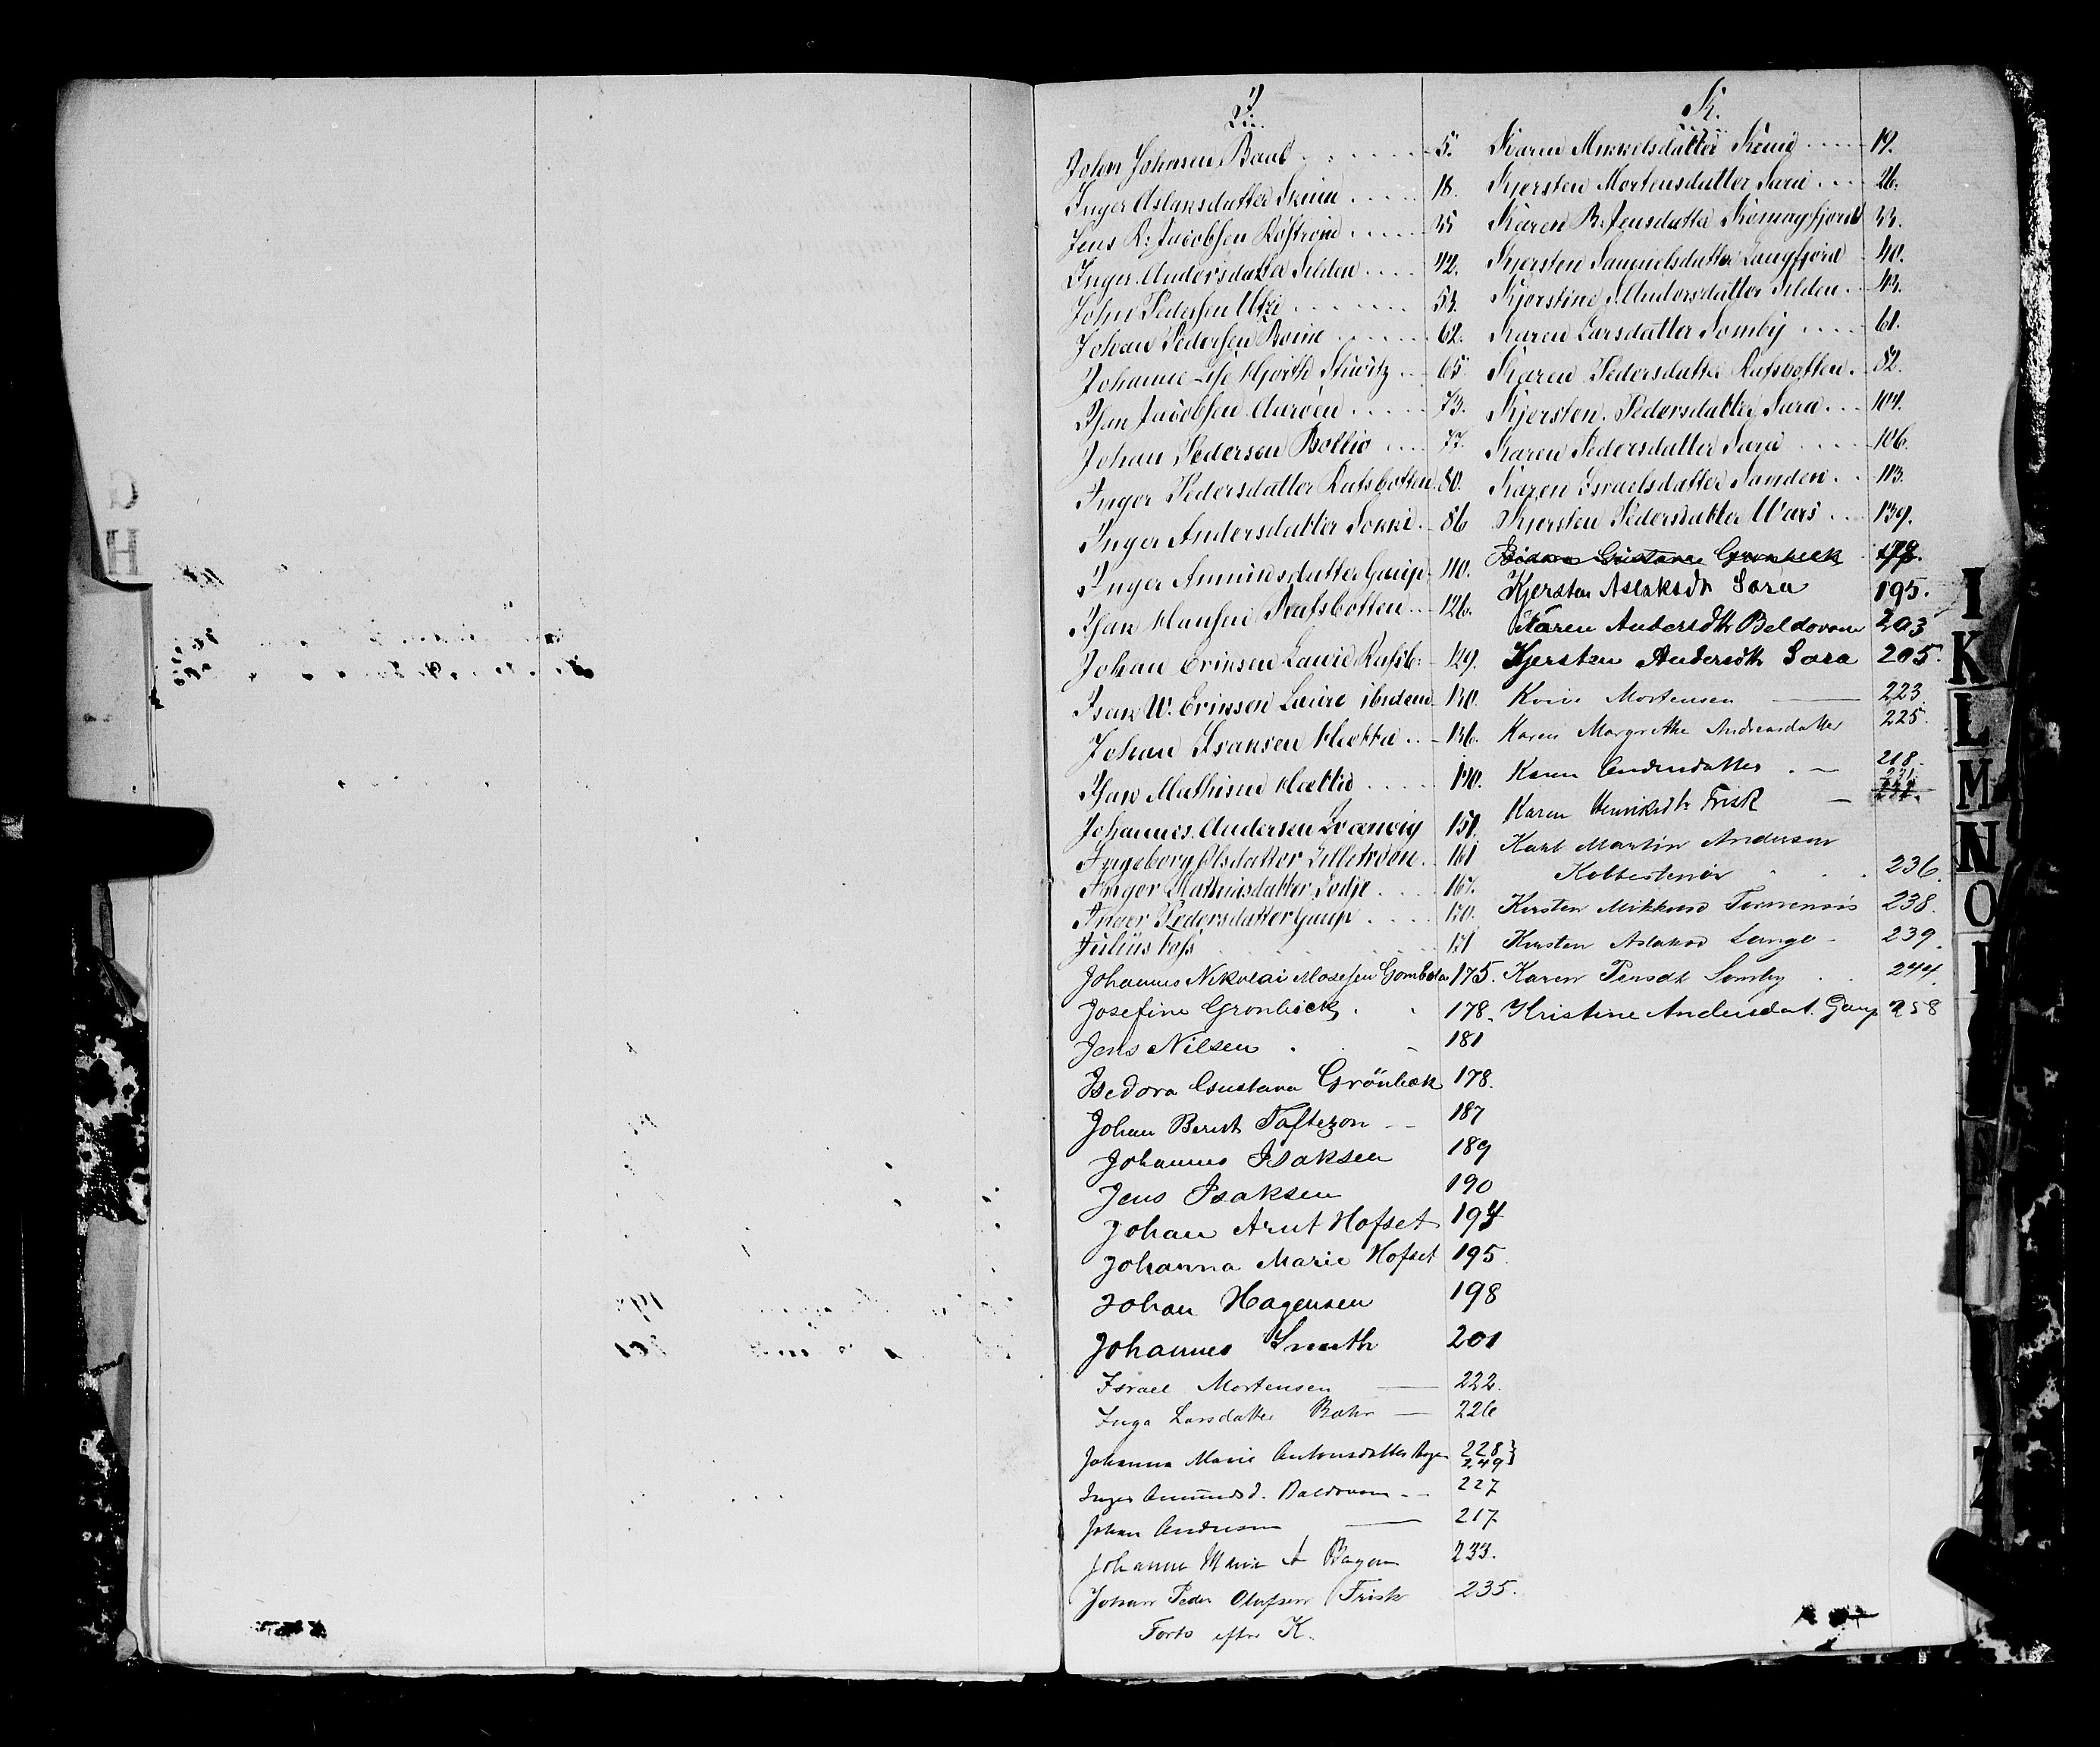 I.
John Johnsen Baul 5.
Inger Aslaksdatter Skum 18.
Jens R: Jacobsen Rostrom 35
Inger Andersdatter Selden 42.
John Pedersen Utzi 53.
Johan Pedersen Boine 62.
Johanne Lise Hjorth Stuwitz 65
Isan Jacobsen Auroen 73.
Johan Pedersen Bollio 77.
Inger Pedersdatter Rafsbotten 80.
Inger Andersdatter Somi 86
Inger Amundsdatter Gaup 110.
Isan Hansen Rafsbotten 126.
Johan Eriksen Lavie Rafsb: 129.
Isan W. Eriksen Laure ibidem 130.
Johan Isansen Hætta 136.
Isan Mathisen Hætta 140.
Johannes Andersen Qvænvig 151.
Ingeborg Olsdatter Lillebroen 161
Inger Mathisdatter Sodje 167.
Inger Pedersdatter Gaup 170.
Julius Foss 171
Johannes Nikolai Mosesen Gombola 175.
Josefine Grønbeck 178.
Jens Nilsen 181
Isedora Gustava Grönbek 178.
Johan Bernt Taftezon 187
Johannes Isaksen 189
Jens Isaksen 190
Johan Arnt Hofset 194
Johanna Marie Hofset 195
Johan Hagensen 198
Johannes Smuth 201
Israel Mortensen 222.
Inga Larsdatter Bæhr 226
Johanna Marie Antonsdatter Bogen 228 }
249 }
Inger Amundsd. Baldovom 227
Johan Andersen 217
Johanne Marie A Bagen 233.
Johan Peder Olufsen Frisk 235.
Forts efter K.
K.
Karen Mikkelsdatter Skum 19.
Kjersten Mortensdatter Sara 26.
Karen B: Jensdatter Komagfjord 33.
Kjersten Samuelsdatter Langfjord 40.
Kjerstine J. Andersdatter Selden 43.
Karen Larsdatter Somby 61.
Karen Pedersdatter Rafsbotten 82.
Kjersten Pedersdatter Sara 104.
Karen Pedersdatter Sara 106.
Karen Israelsdatter Sanden 113.
Kjersten Pedersdatter Wars 139.
Isidora Gustava Gronbeck 178.
Kjersten Aslaksdtr Sara 195.
Karen Andersdtr Beldovom 203
Kjersten Andersdtr Sara 205.
Karen Mortensen 223
Karen Margrethe Andreasdatter 225.
Karen Andersdatter 218.
Karen Henriksdtr Frisk 231.
Karl Martin Andersen
Kobbertenor 236.
Kirsten Mikkelsd Tornensis 238.
Kirsten Aslaksd Lango 239.
Karen Persdtr Somby 244.
Kristine Andersdat. Gaup 258
G
H
I
K
L
M
N
O
S